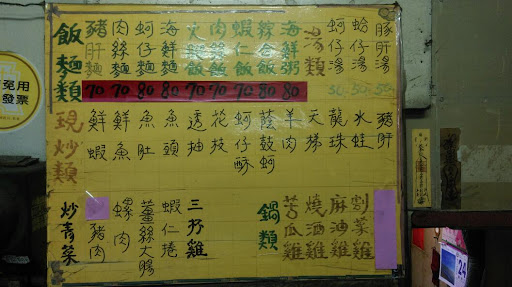 飯麵類
豬肝麵 70
肉絲麵 70
蚵仔麵 80
海鮮麵 80
火腿飯 70
肉絲飯 70
蝦仁飯 70
綜合飯 80
海鮮粥 80
湯類
蚵仔湯 50
蛤仔湯 50
豚肝湯 50
現炒類
鮮蝦
鮮魚
魚肚
魚頭
透抽
花枝
蚵仔酥
蔭鼓蚵
羊肉
天梯
龍珠
水蛙
豬肝
炒青菜
豬肉
螺肉
薑絲大腸
蝦仁捲
三杯雞
鍋類
苦瓜雞
燒酒雞
麻油雞
割菜雞
免用
發票
24